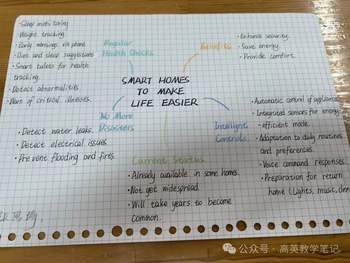 Sleep monitoring
Weight tracking.
Early warnings via phone.
Diet and sleep suggestions
Smart toilets for health
tracking.
Detect abnormalities
Warn of critical illnesses.
Regular
Health Checks
Benefits
Enhance security.
Save energy.
Provide comfort.
SMART HOMES
TO MAKE
LIFE EASIER
No More
Disasters
Detect water leaks.
Detect electrical issues.
Prevent flooding and fires.
Intelligent
Controls
Automatic control of appliances
Integrated sensors for energy-
efficient mode.
Adaptation to daily routines
and preferences.
Voice command responses.
Preparation for return
home (lights, music, dinner
Current Status
Already available in some homes.
Not yet widespread.
Will take years to become
common.
公众号 · 高英教学笔记